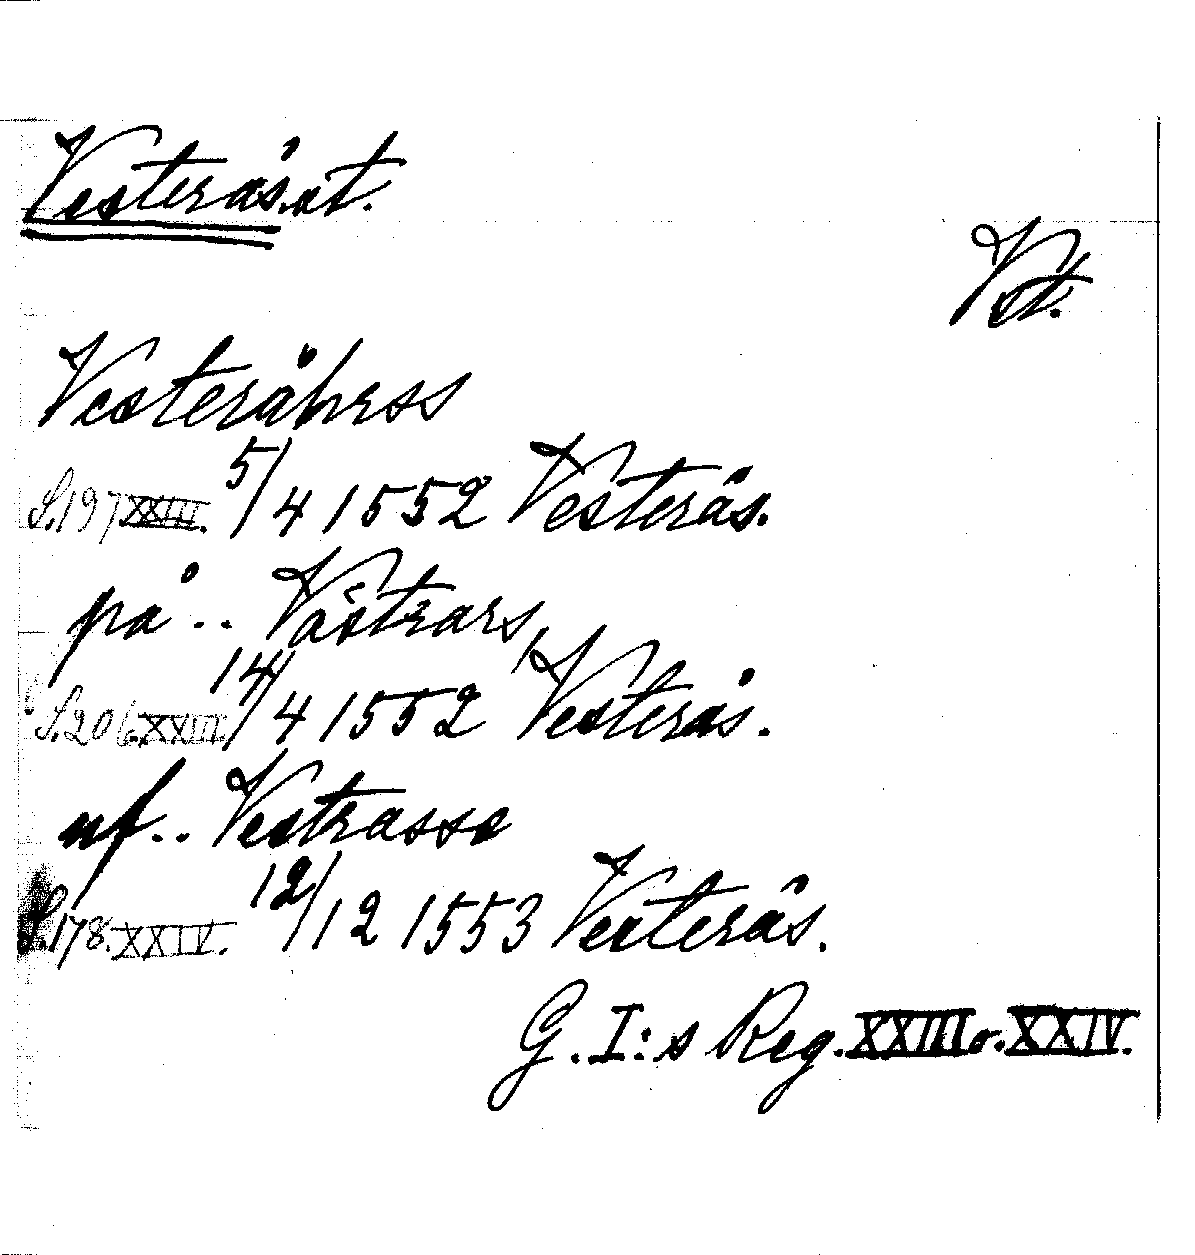 Vesterås. st.
Vst.
Vesteråhrss
S.197 XXIII. 5/4 1552 Vesterås.
på .. Västrars,
S.206. XXIII. 14/4 1552 Vesterås.
uf .. Vestrasse
S.178. XXIV. 12/12 1553 Vesterås.
G. I:s Reg. XXIII o. XXIV.